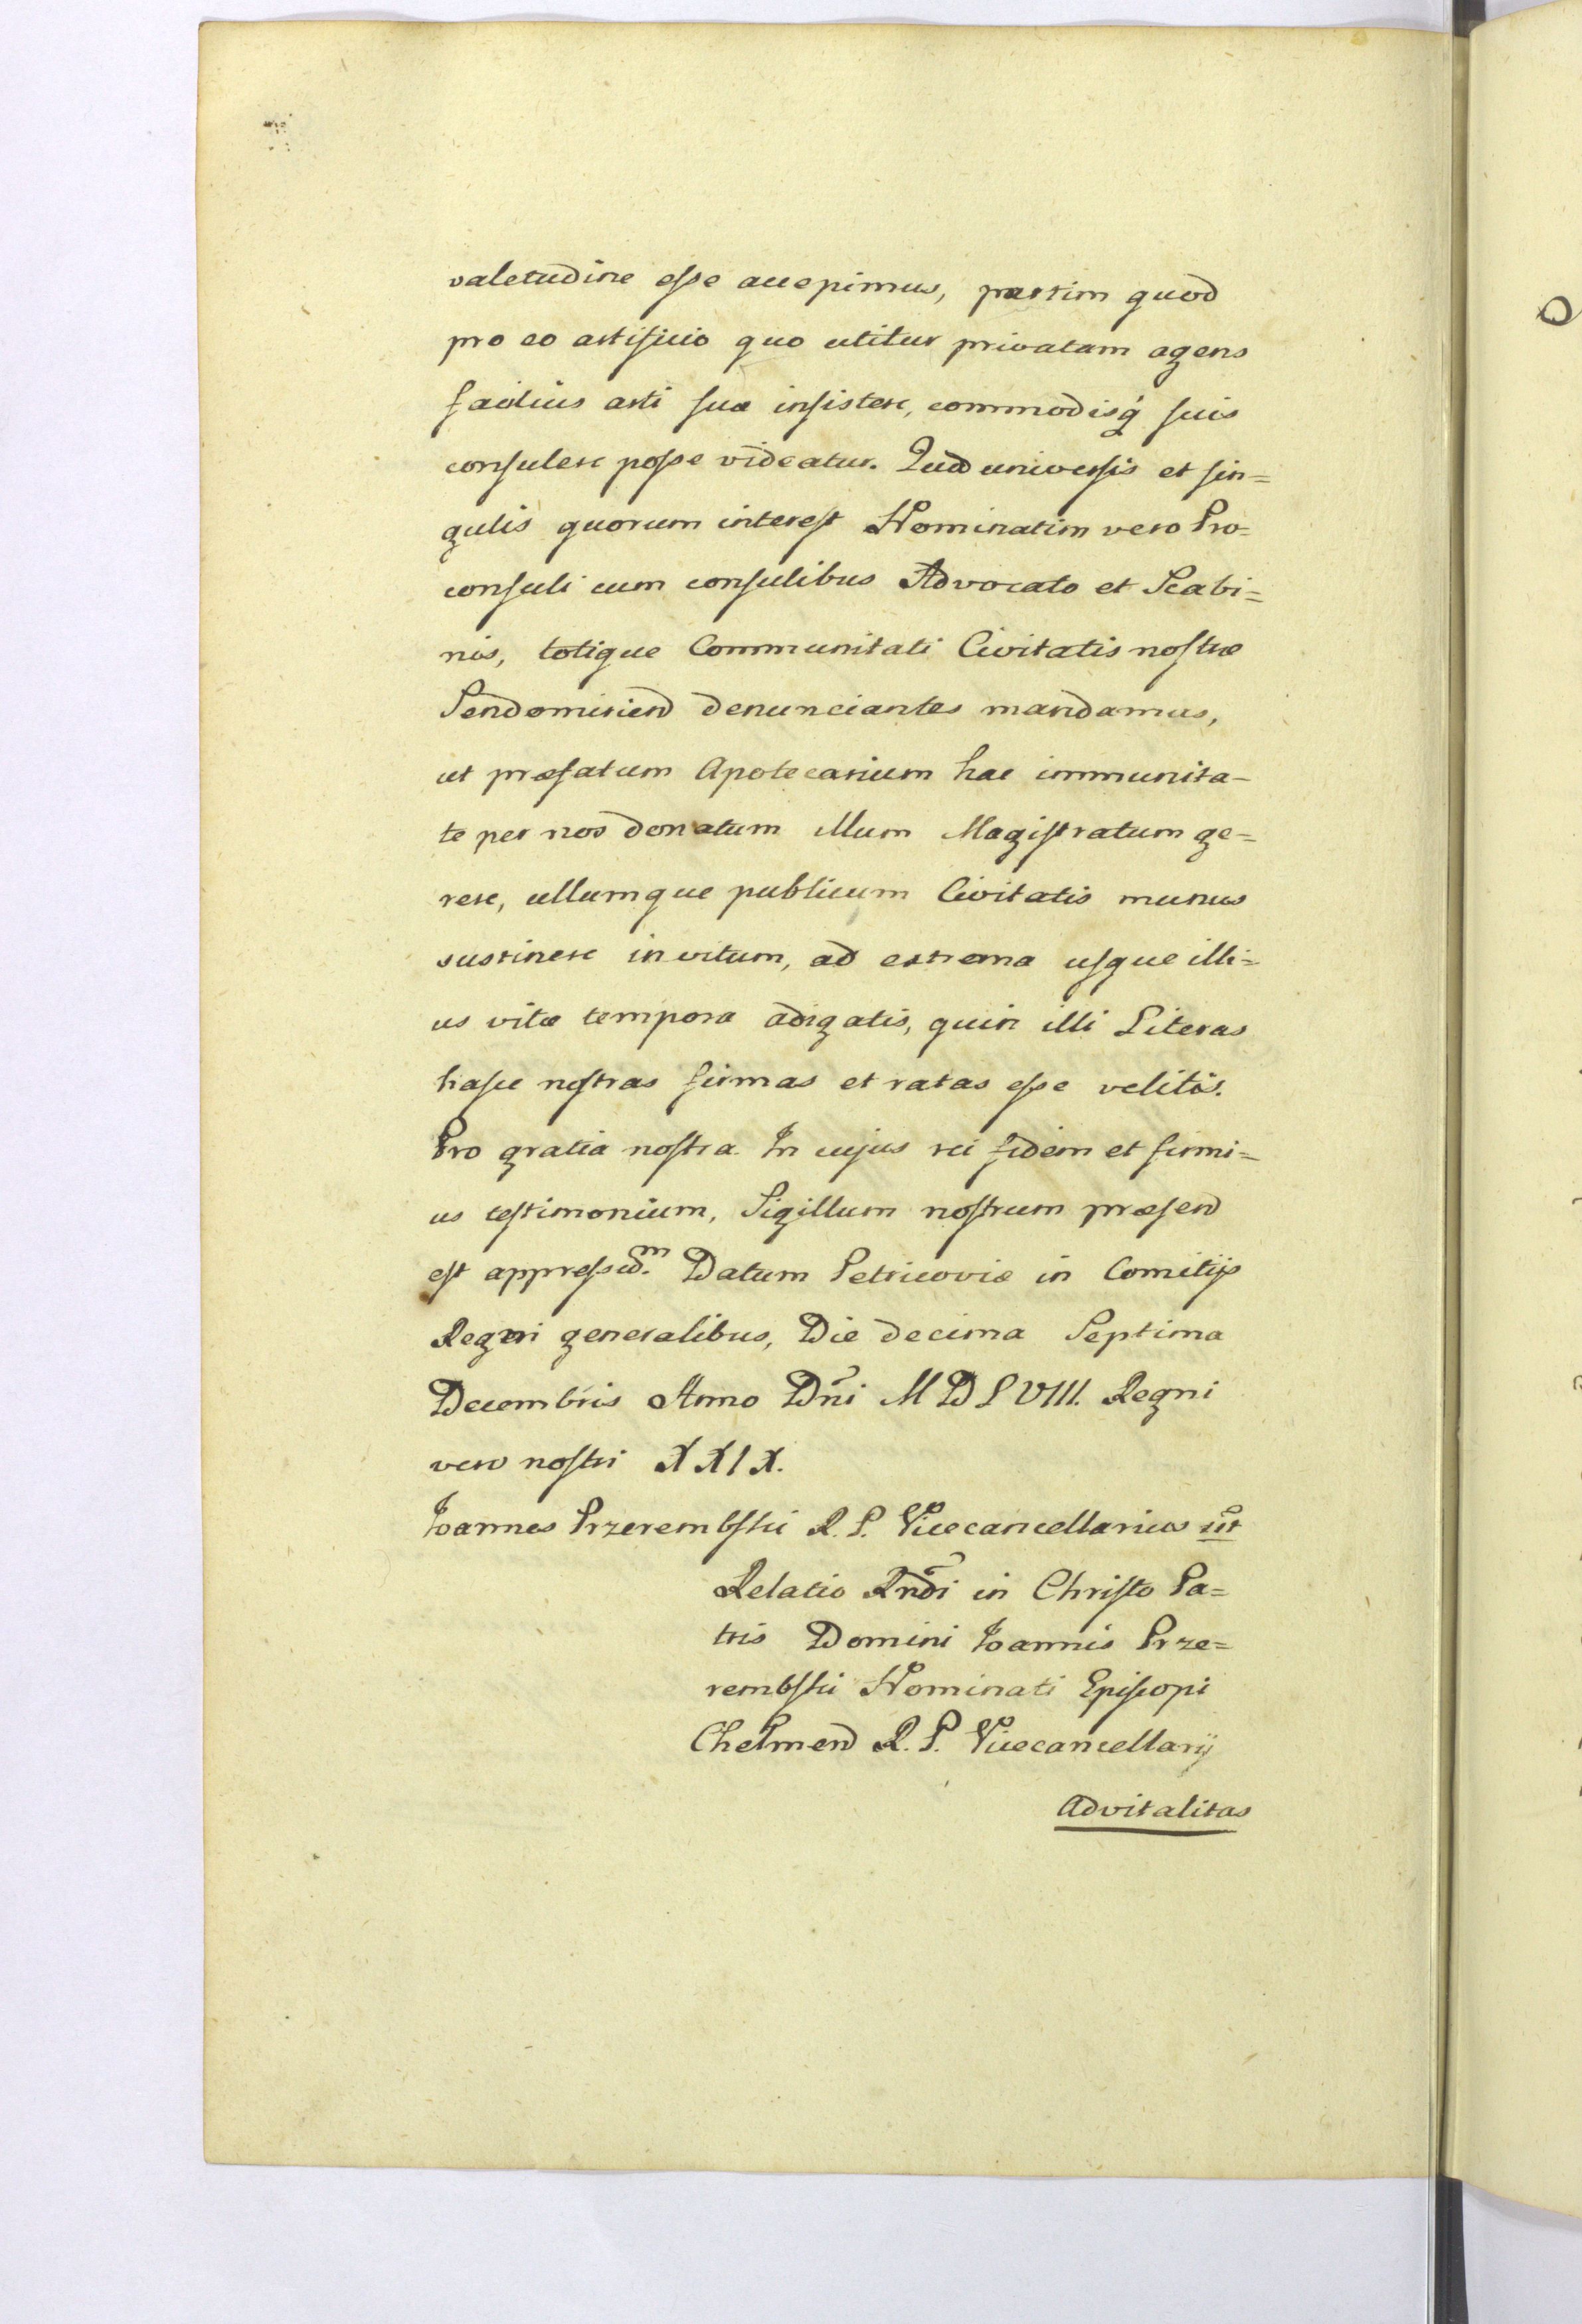 valetudine esse accepimus, partim quod
pro eo artificio quo utitur privatam agens
facilius arti suæ insistere, commodisq́ suis
consulere posse videatur. Quod universis et sin=
gulis quorum interest Nominatim vero Pro=
consuli cum consulibus Advocato et Scabi=
nis, totique Communitati Civitatis nostræ
Sendomirien denunciantes mandamus,
ut præfatum Apotecarium hac immunita-
te per nos donatum illum Magistratum ge=
rere, ullumque publicum Civitatis munus
sustinere invitum, ad extrema usque illi=
us vitæ tempora adigatis, quin illi Literas
hasce nostras firmas et ratas esse velitis.
Pro gratia nostra. In cujus rei fidem et firmi=
us testimonium, Sigillum nostrum præsen
est appressu.m Datum Petricoviæ in Comitijs
Regni generalibus, Die decima Septima
Decembris Anno Dñi MDLVIII. Regni
vero nostri XXIX.
Joannes Przerembski R. P. Vicecancellarius sst
Relatio Rndi in Christo Pa=
tris Domini Joannis Prze=
rembski Nominati Episcopi
Chelmen R. P. Vicecancellarij
Advitalitas